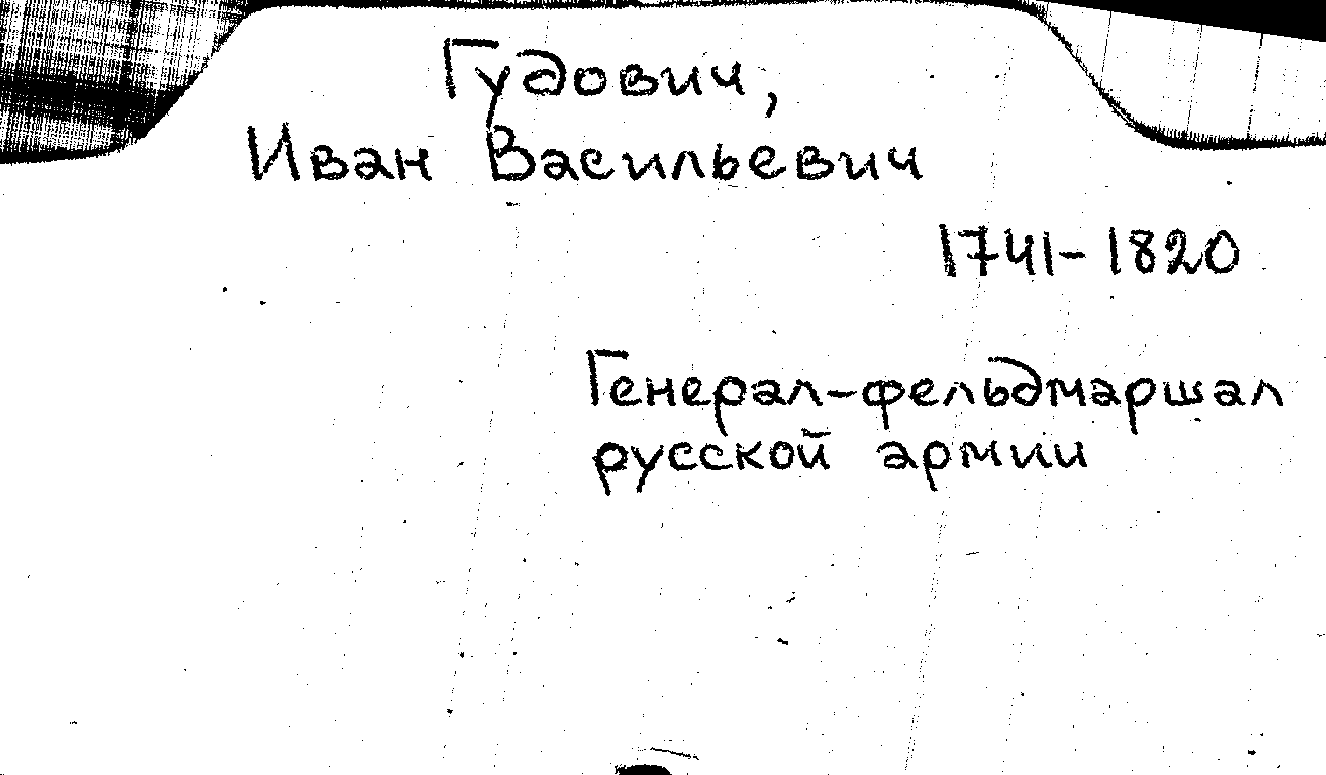 Гудович,
Иван Васильевич
1741-1820
Генерал-фельдмаршал
русской армии